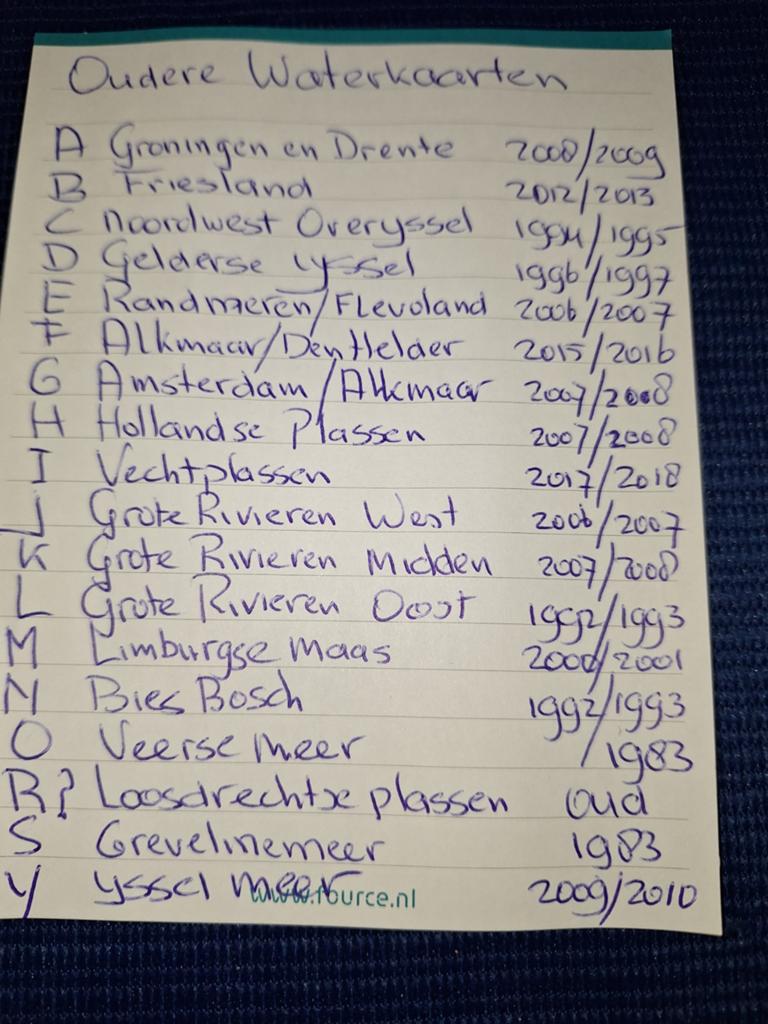 Oudere Waterkaarten
A Groningen en Drente 2008/2009
B Friesland 2012/2013
C Noordwest Overyssel 1994/1995
D Gelderse yssel 1996/1997
E Randmeren/Flevoland 2006/2007
F Alkmaar/Den Helder 2015/2016
G Amsterdam/Alkmaar 2007/2008
H Hollandse Plassen 2007/2008
I Vechtplassen 2017/2018
J Grote Rivieren West 2006/2007
K Grote Rivieren Midden 2007/2008
L Grote Rivieren Oost 1992/1993
M Limburgse Maas 2000/2001
N Bies Bosch 1992/1993
O Veerse meer /1983
R? Loosdrechtse plassen oud
S Grevelinemeer 1983
Y yssel meer 2009/2010
www.fource.nl